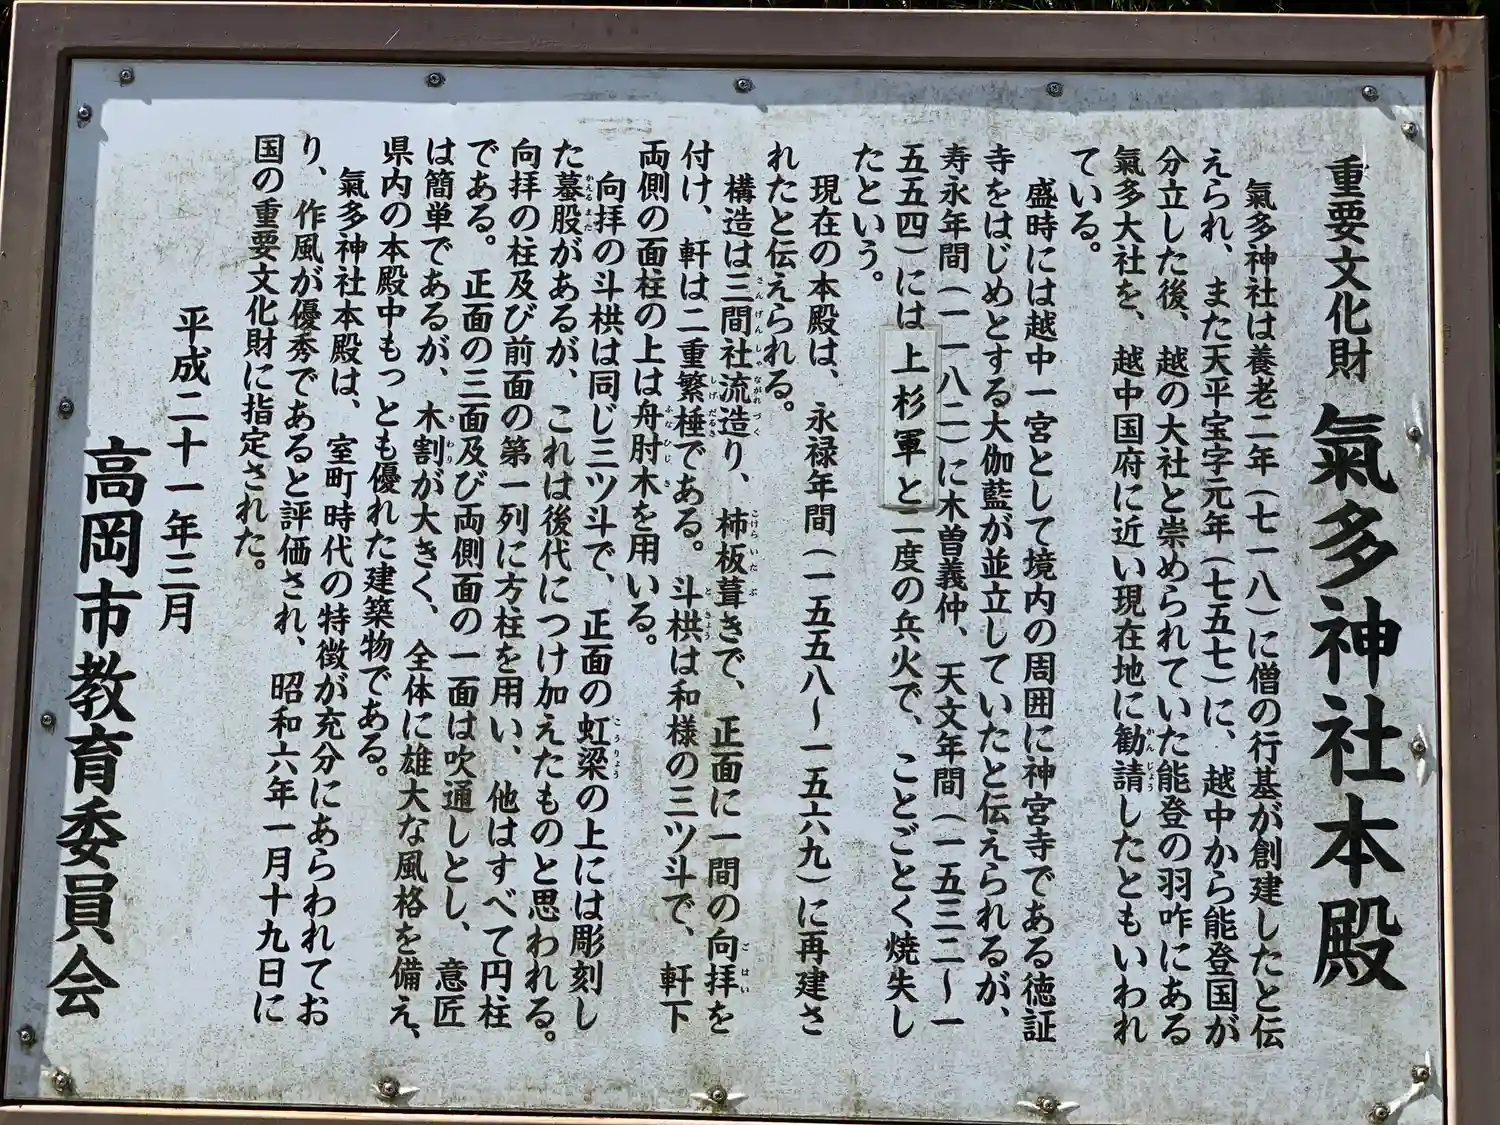 重要文化財 氣多神社本殿
氣多神社は養老二年(七一八)に僧の行基が創建したと伝
えられ、また天平宝字元年(七五七)に、越中から能登国が
分立した後、越の大社と崇められていた能登の羽咋にある
氣多大社を、越中国府に近い現在地に勧請したともいわれ
ている。
盛時には越中一宮として境内の周囲に神宮寺である徳証
寺をはじめとする大伽藍が並立していたと伝えられるが、
寿永年間(一一八二)に木曽義仲、天文年間(一五三二～一
五五四)には上杉軍と二度の兵火で、ことごとく焼失し
たという。
現在の本殿は、永禄年間(一五五八～一五六九)に再建さ
れたと伝えられる。
構造は三間社流造り、杮板葺きで、正面に一間の向拝を
付け、軒は二重繁棰である。斗栱は和様の三ツ斗で、軒下
両側の面柱の上は舟肘木を用いる。
向拝の斗栱は同じ三ツ斗で、正面の虹梁の上には彫刻し
た蟇股があるが、これは後代につけ加えたものと思われる。
向拝の柱及び前面の第一列に方柱を用い、他はすべて円柱
である。正面の三面及び両側面の一面は吹通しとし、意匠
は簡単であるが、木割が大きく、全体に雄大な風格を備え、
県内の本殿中もっとも優れた建築物である。
氣多神社本殿は、室町時代の特徴が充分にあらわれてお
り、作風が優秀であると評価され、昭和六年一月十九日に
国の重要文化財に指定された。
平成二十一年三月
高岡市教育委員会